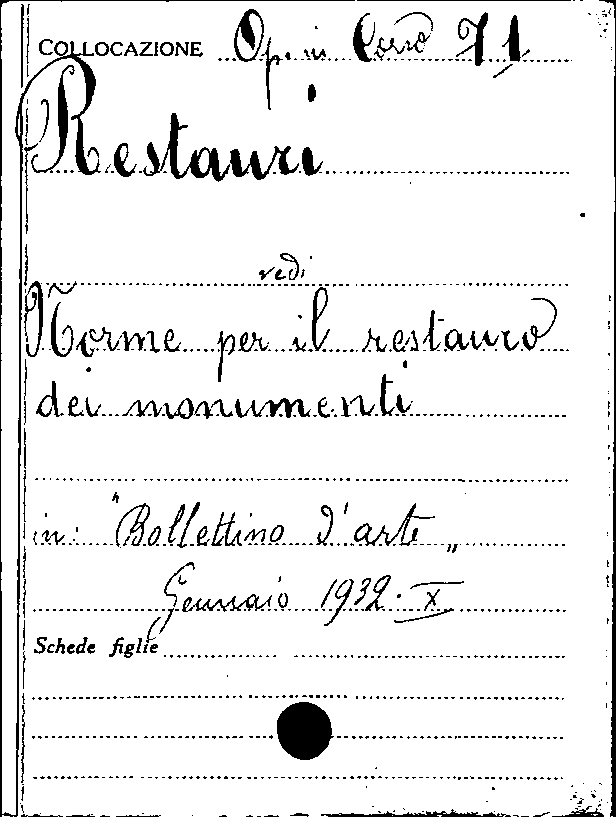 COLLOCAZIONE Op. in Corso 71
Restauri
vedi
Norme per il restauro
dei monumenti
in: "Bollettino d'arte„
Gennaio 1932. X
Schede figlie